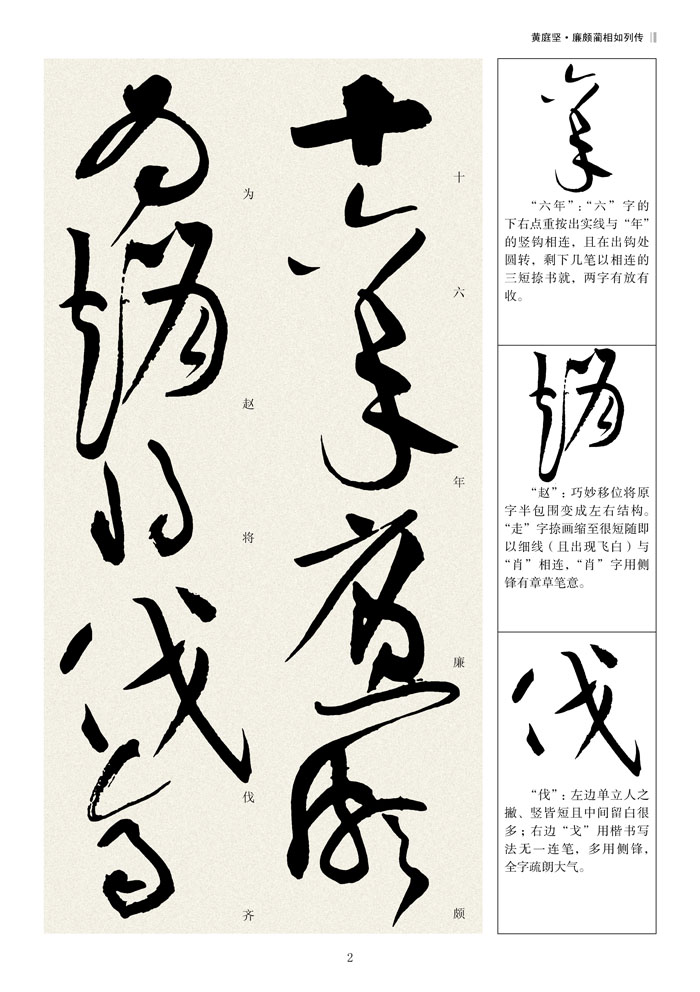 黄庭坚·廉颇蔺相如列传
十六年廉颇
为赵将伐齐
十
六
年
廉
颇
为
赵
将
伐
齐
六年
“六年”：“六”字的
下右点重按出实线与“年”
的竖钩相连，且在出钩处
圆转，剩下几笔以相连的
三短捺书就，两字有放有
收。
赵
“赵”：巧妙移位将原
字半包围变成左右结构。
“走”字捺画缩至很短随即
以细线（且出现飞白）与
“肖”相连，“肖”字用侧
锋有章草笔意。
伐
“伐”：左边单立人之
撇、竖皆短且中间留白很
多；右边“戈”用楷书写
法无一连笔，多用侧锋，
全字疏朗大气。
2